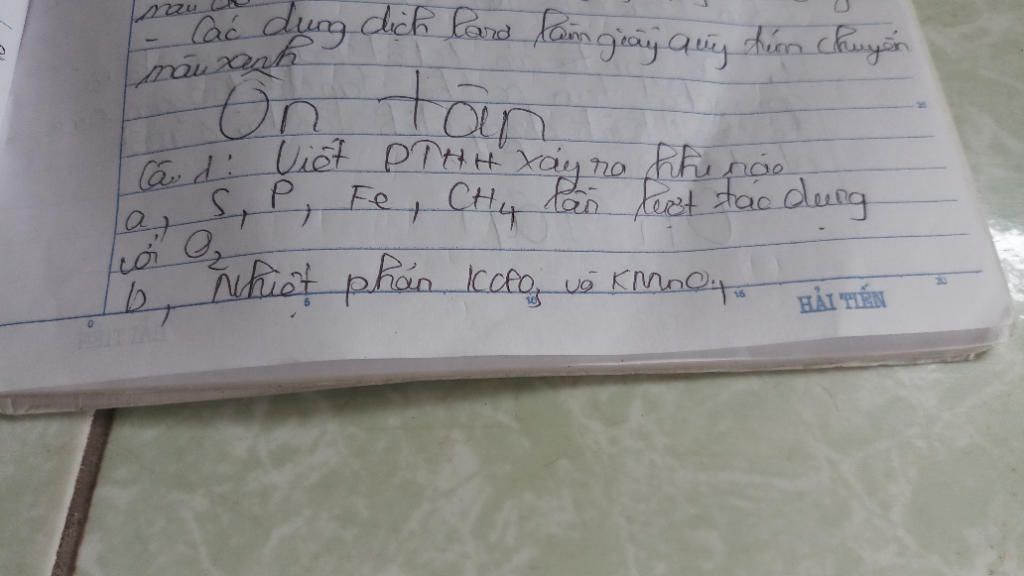 màu đỏ
- Các dung dịch bazơ làm giấy quỳ tím chuyển
màu xanh
Ôn tập
Câu 1: Viết PTHH xảy ra khi nào
a, S, P, Fe, CH4 lần lượt tác dụng
với O2
b, Nhiệt phân KClO3 và KMnO4
HẢI TIẾN